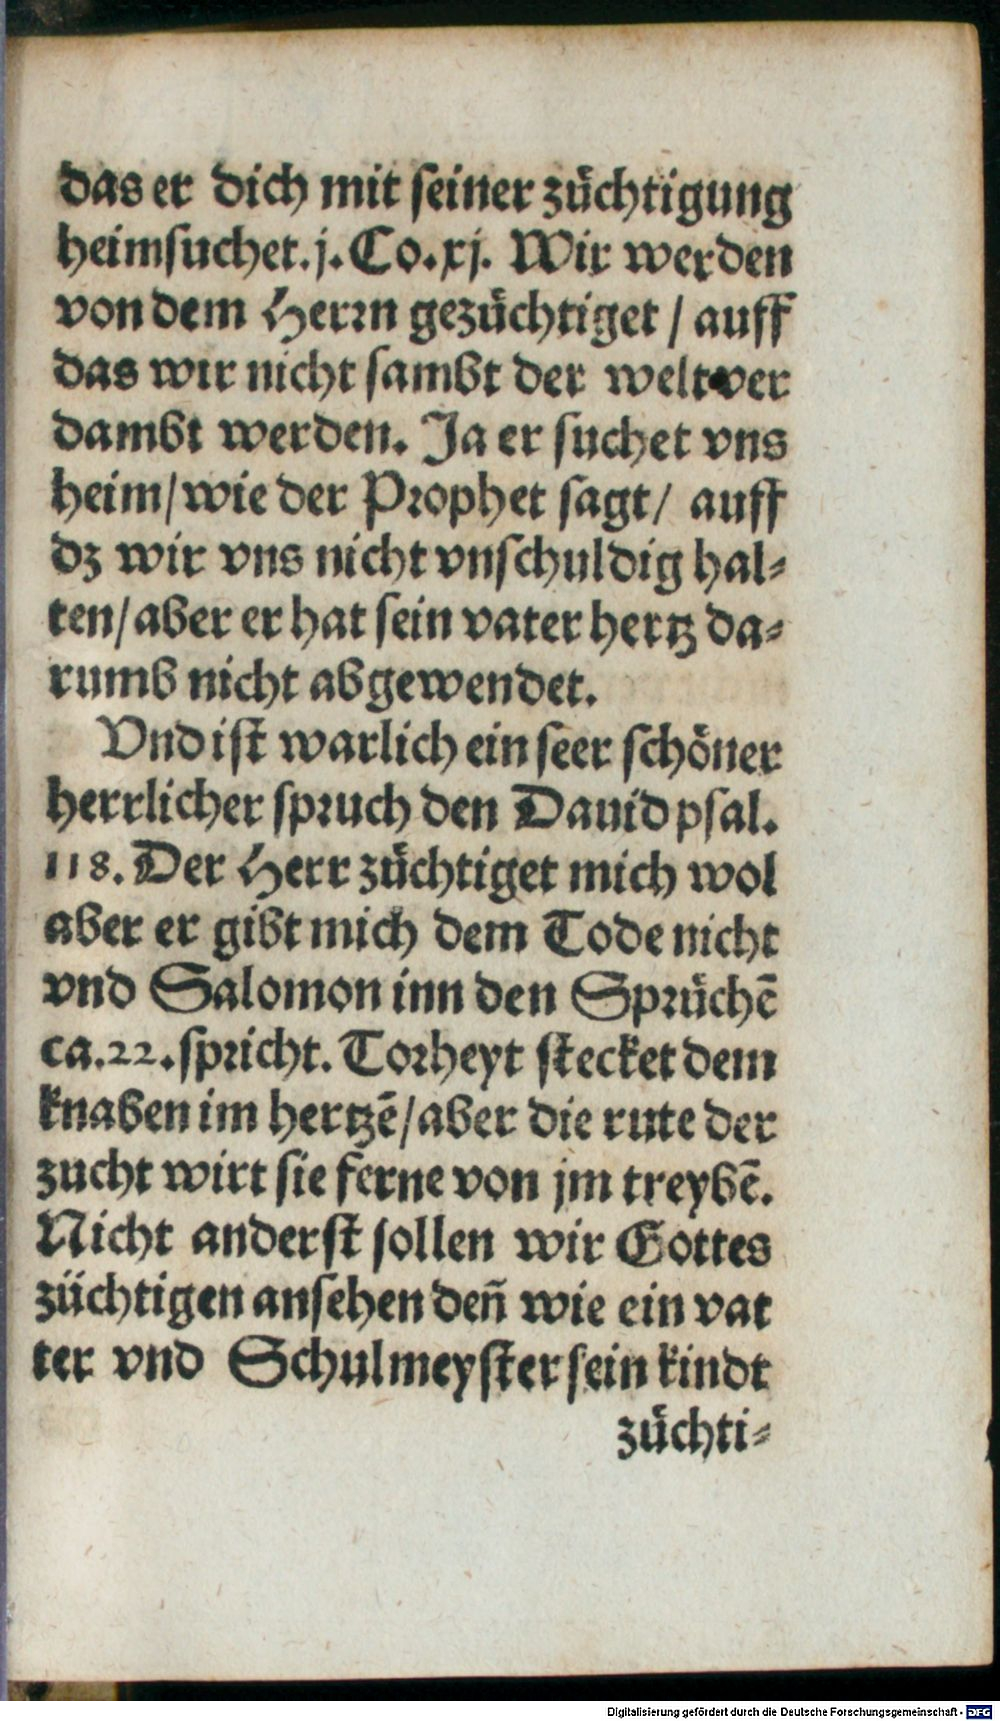 das er dich mit seiner züchtigung
heimsuchet. j. Co. xj. Wir werden
von dem Herrn gezüchtiget / auff
das wir nicht sambt der welt ver
dambt werden. Ja er suchet vns
heim / wie der Prophet sagt / auff
dz wir vns nicht vnschuldig hal⸗
ten / aber er hat sein vater hertz da⸗
rumb nicht abgewendet.
Vnd ist warlich ein seer schöner
herrlicher spruch den Dauid psal.
118. Der Herr züchtiget mich wol
aber er gibt mich dem Tode nicht
vnd Salomon inn den Sprüchē
ca. 22. spricht. Torheyt stecket dem
knaben im hertzē / aber die rute der
zucht wirt sie ferne von jm treybē.
Nicht anderst sollen wir Gottes
züchtigen ansehen deñ wie ein vat
ter vnd Schulmeyster sein kindt
züchti⸗
Digitalisierung gefördert durch die Deutsche Forschungsgemeinschaft - DFG